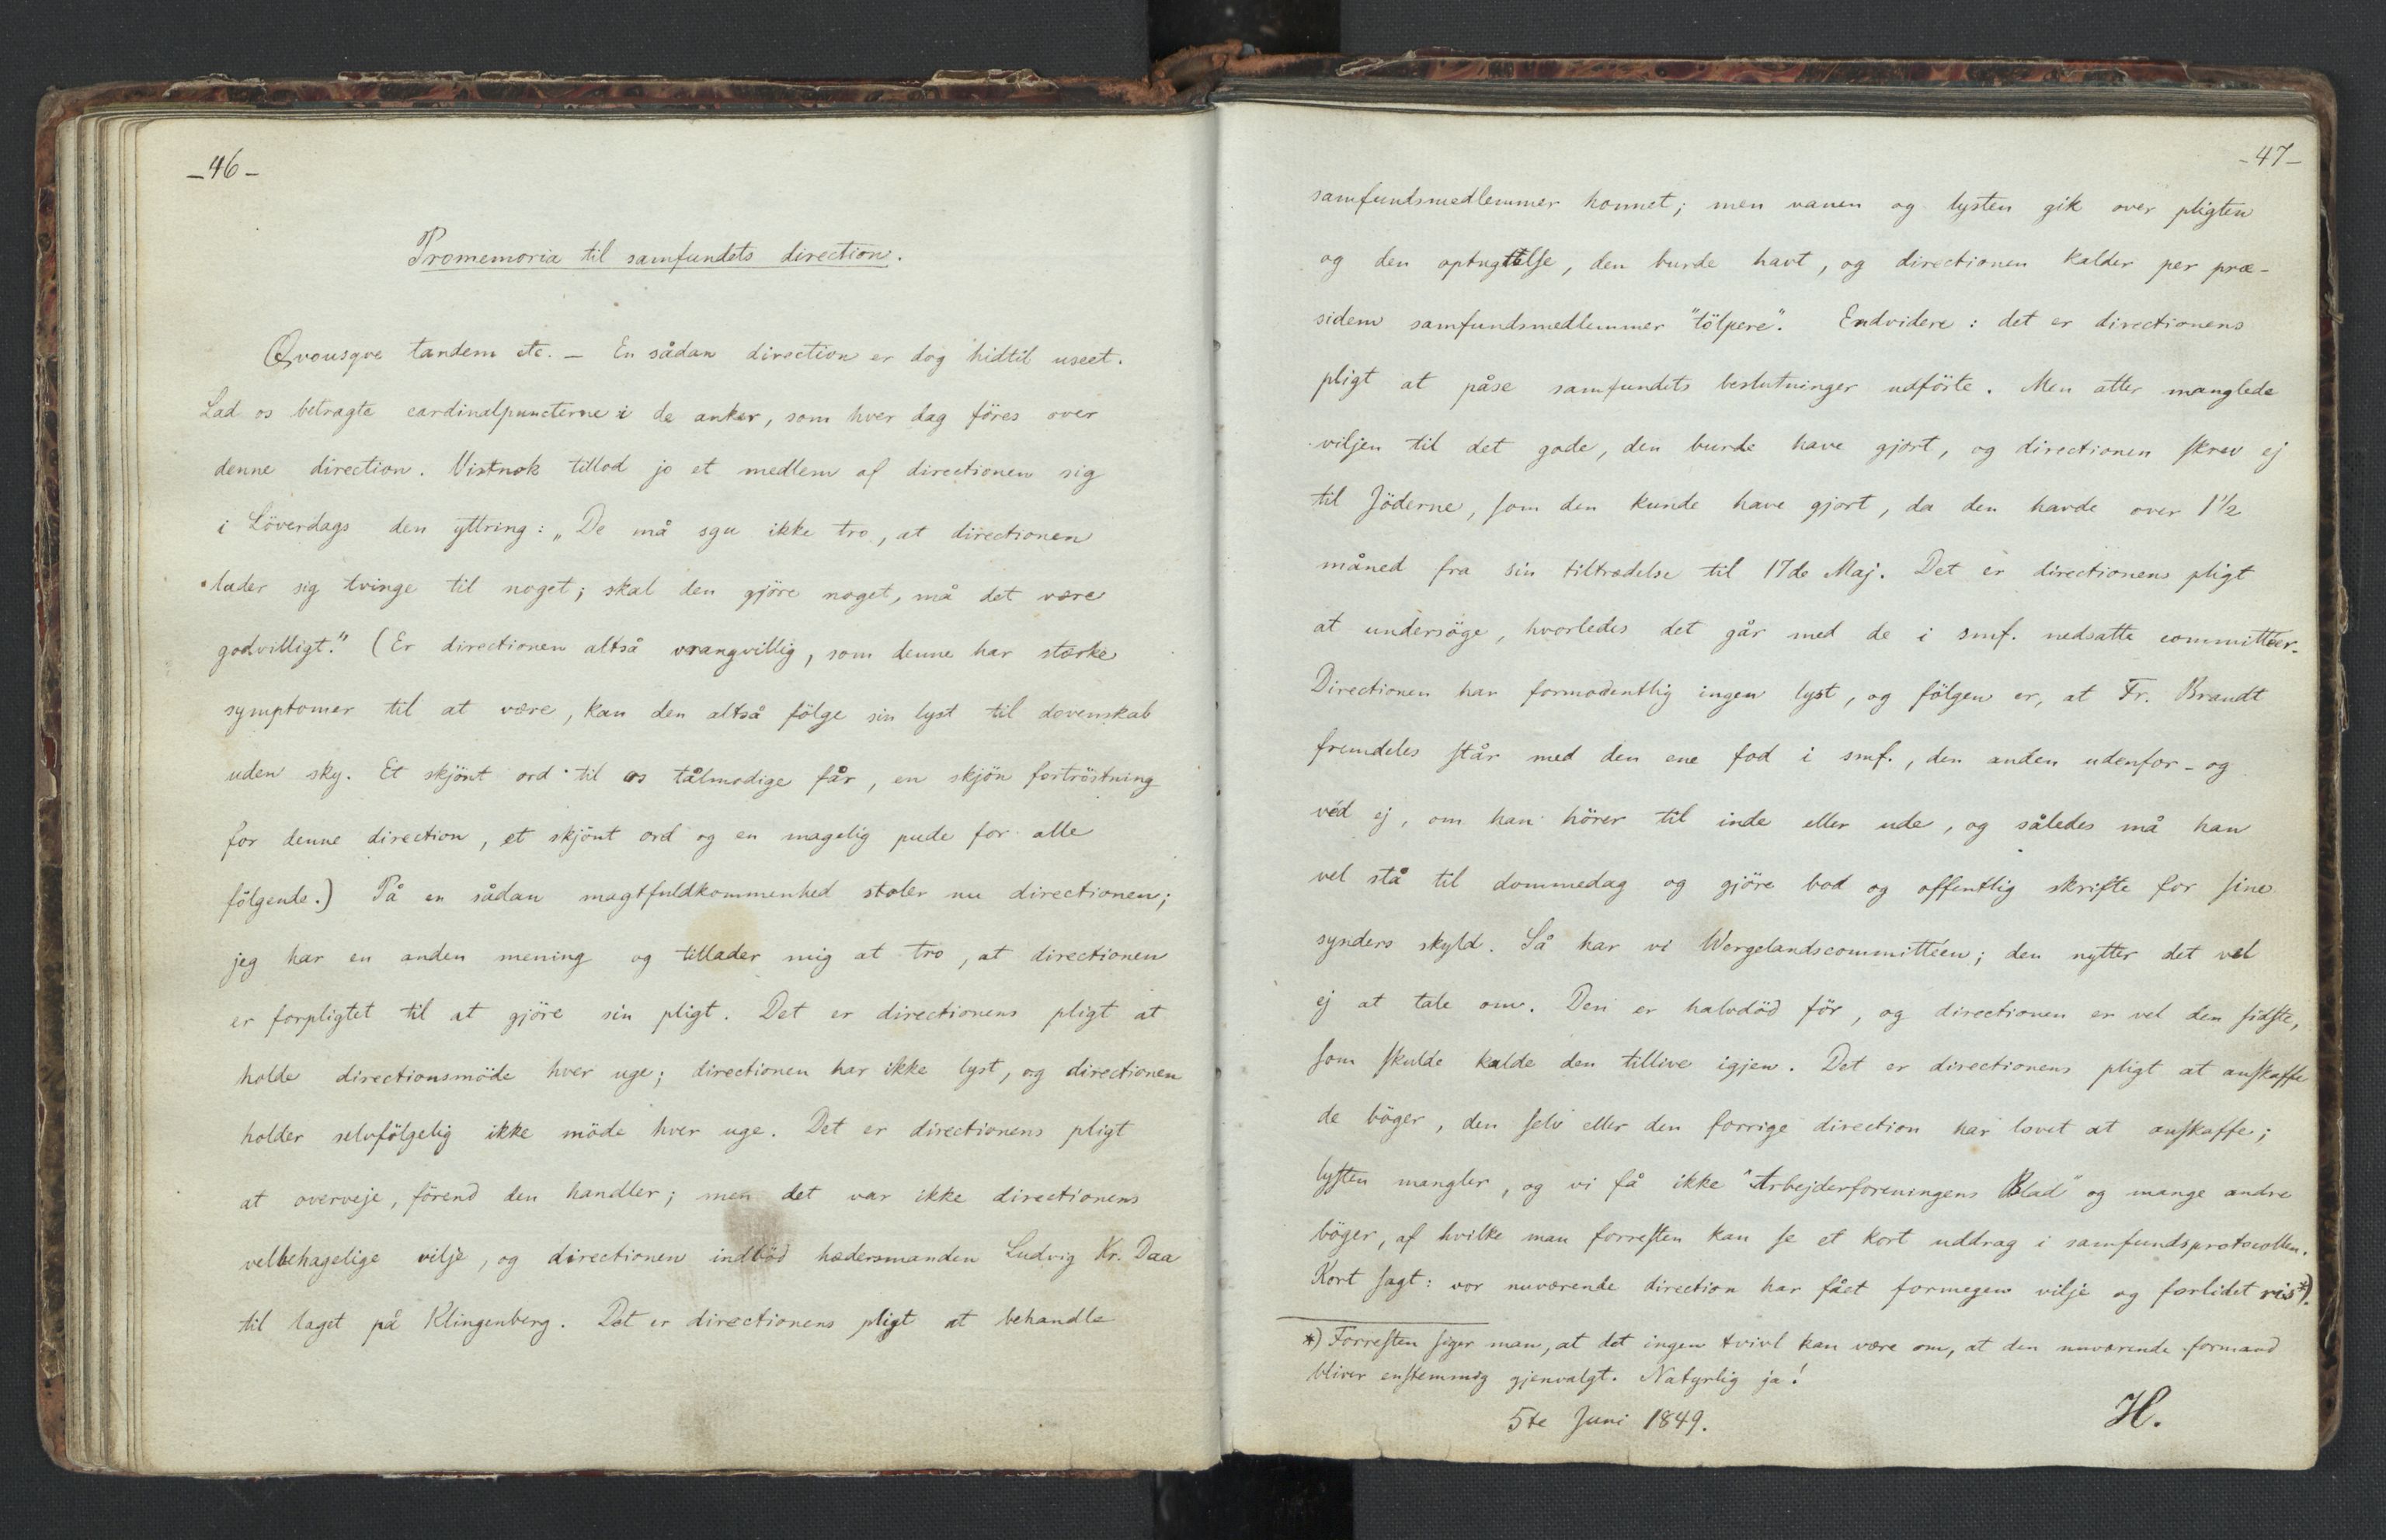 -46-
Promemoria til samfundets direction.
Qvousqve tandem etc. — En sådan direction er dog hidtil useet.
Lad os betragte cardinalpuncterne i de anker, som hver dag föres over
denne direction. Vistnok tillod jo et medlem af directionen sig
i Löverdags den yttring: „De må sgu ikke tro, at directionen
lader sig tvinge til noget; skal den gjöre noget, må det være
godvilligt." (Er directionen altså vrangvillig, som denne har stærke
symptomer til at være, kan den altså fölge sin lyst til dovenskab
uden sky. Et skjönt ord til os tålmodige får, en skjön fortröstning
for denne direction, et skjönt ord og en magelig pude for alle
fölgende.) På en sådan magtfuldkommenhed stoler nu directionen;
jeg har en anden mening og tillader mig at tro, at directionen
er forpligtet til at gjöre sin pligt. Det er directionens pligt at
holde directionsmöde hver uge; directionen har ikke lyst, og directionen
holder selvfölgelig ikke möde hver uge. Det er directionens pligt
at overveje, förend den handler; men det var ikke directionens
velbehagelige vilje, og directionen indböd hædersmanden Ludvig Kr. Daa
til laget på Klingenberg. Det er directionens pligt at behandle
-47-
samfundsmedlemmer honnet; men vanen og lysten gik over pligten
og den optugttelse, den burde havt, og directionen kalder per præ-
sidem samfundsmedlemmer "tölpere". Endvidere: det er directionens
pligt at påse samfundets beslutninger udförte. Men atter manglede
viljen til det gode, den burde have gjort, og directionen skrev ej
til Jöderne, som den kunde have gjort, da den havde over 1½
måned fra sin tiltrædelse til 17de Maj. Det er directionens pligt
at undersöge, hvorledes det går med de i smf. nedsatte committeer.
Directionen har formodentlig ingen lyst, og fölgen er, at Fr. Brandt
fremdeles står med den ene fod i smf., den anden udenfor - og
véd ej, om han hörer til inde eller ude, og således må han
vel stå til dommedag og gjöre bod og offentlig skrifte for sine
synders skyld. Så har vi Wergelandscommittéen; den nytter det vel
ej at tale om. Den er halvdöd för, og directionen er vel den sidste,
som skulde kalde den tillive igjen. Det er directionens pligt at anskaffe
de böger, den selv eller den forrige direction har lovet at anskaffe;
lysten mangler, og vi få ikke "Arbejderforeningens Blad" og mange andre
böger, af hvilke man forresten kan se et kort uddrag i samfundsprotocollen.
Kort sagt: vor nuværende direction har fået formegen vilje og forlidet ris*).
*) Forresten siger man, at det ingen tvivl kan være om, at den nuværende formand
bliver enstemmig gjenvalgt. Natyrlig ja!
5te Juni 1849. H.